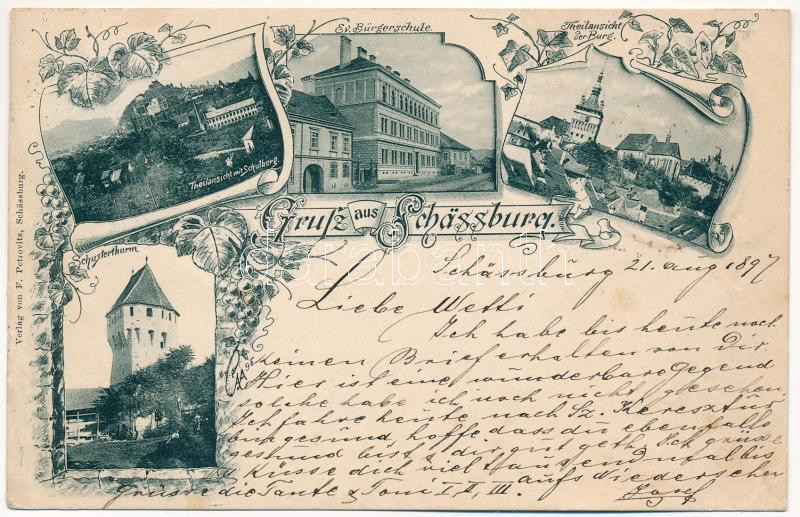 Ev. Bürgerschule.
Theilansicht
der Burg.
Theilansicht mit Schulberg.
Gruß aus Schässburg.
Schusterthurm
Verlag von F. Petrovits, Schässburg.
Schässburg 21. aug 1897
Liebe Wetti
Ich habe bis heute noch
keinen Brief erhalten von Dir.
Hier ist eine wunderbare Gegend
solche habe ich noch nicht gesehen
Ich fahre heute nach Sz. Keresztúr
bin gesund, hoffe dass du ebenfalls
gesund bist & dir gut geth. Ich grüsse
u Küsse dich viel tausendmal bis
aufs wiedersehen
Grüsse die Tante & Toni I, II, III.
Josef